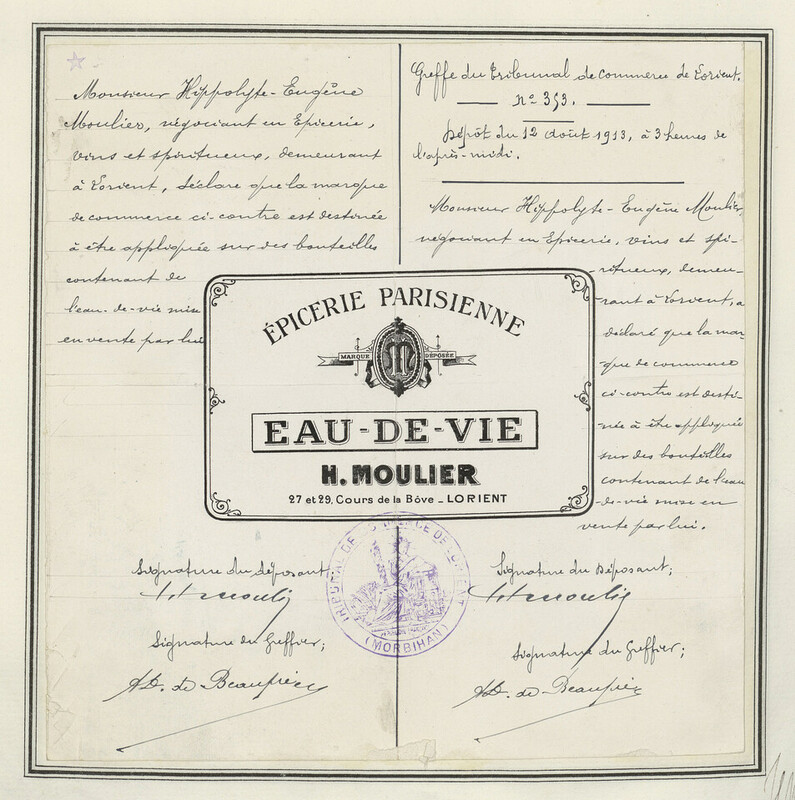 Monsieur Hippolyte-Eugène
Moulier, négociant en Epicerie,
vins et spiritueux, demeurant
à Lorient, déclare que la marque
de commerce ci-contre est destinée
à être appliquée sur des bouteilles
contenant de
l'eau-de-vie mise
en vente par lui
Greffe du Tribunal de Commerce de Lorient.
N° 353.
Dépôt du 12 Août 1913, à 3 heures de
l'après-midi.
Monsieur Hippolyte-Eugène Moulier,
négociant en Epicerie, vins et spi-
ritueux, demeu-
rant à Lorient, a
déclaré que la mar-
que de commerce
ci-contre est desti-
née à être appliquée
sur des bouteilles
contenant de l'eau
-de-vie mise en
vente par lui.
ÉPICERIE PARISIENNE
MARQUE DÉPOSÉE
M
EAU-DE-VIE
H. MOULIER
27 et 29, Cours de la Bôve _ LORIENT
Signature du déposant
H Moulier
Signature du Greffier;
Ad. de Beaufrier
Signature du Déposant;
H Moulier
Signature du Greffier;
Ad. de Beaufrier
TRIBUNAL DE COMMERCE DE LORIENT
(MORBIHAN)